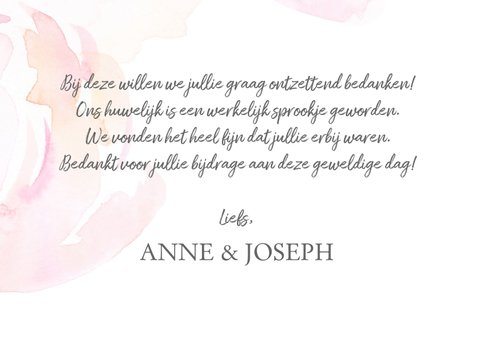 Bij deze willen we jullie graag ontzettend bedanken!
Ons huwelijk is een werkelijk sprookje geworden.
We vonden het heel fijn dat jullie erbij waren.
Bedankt voor jullie bijdrage aan deze geweldige dag!
Liefs,
ANNE & JOSEPH